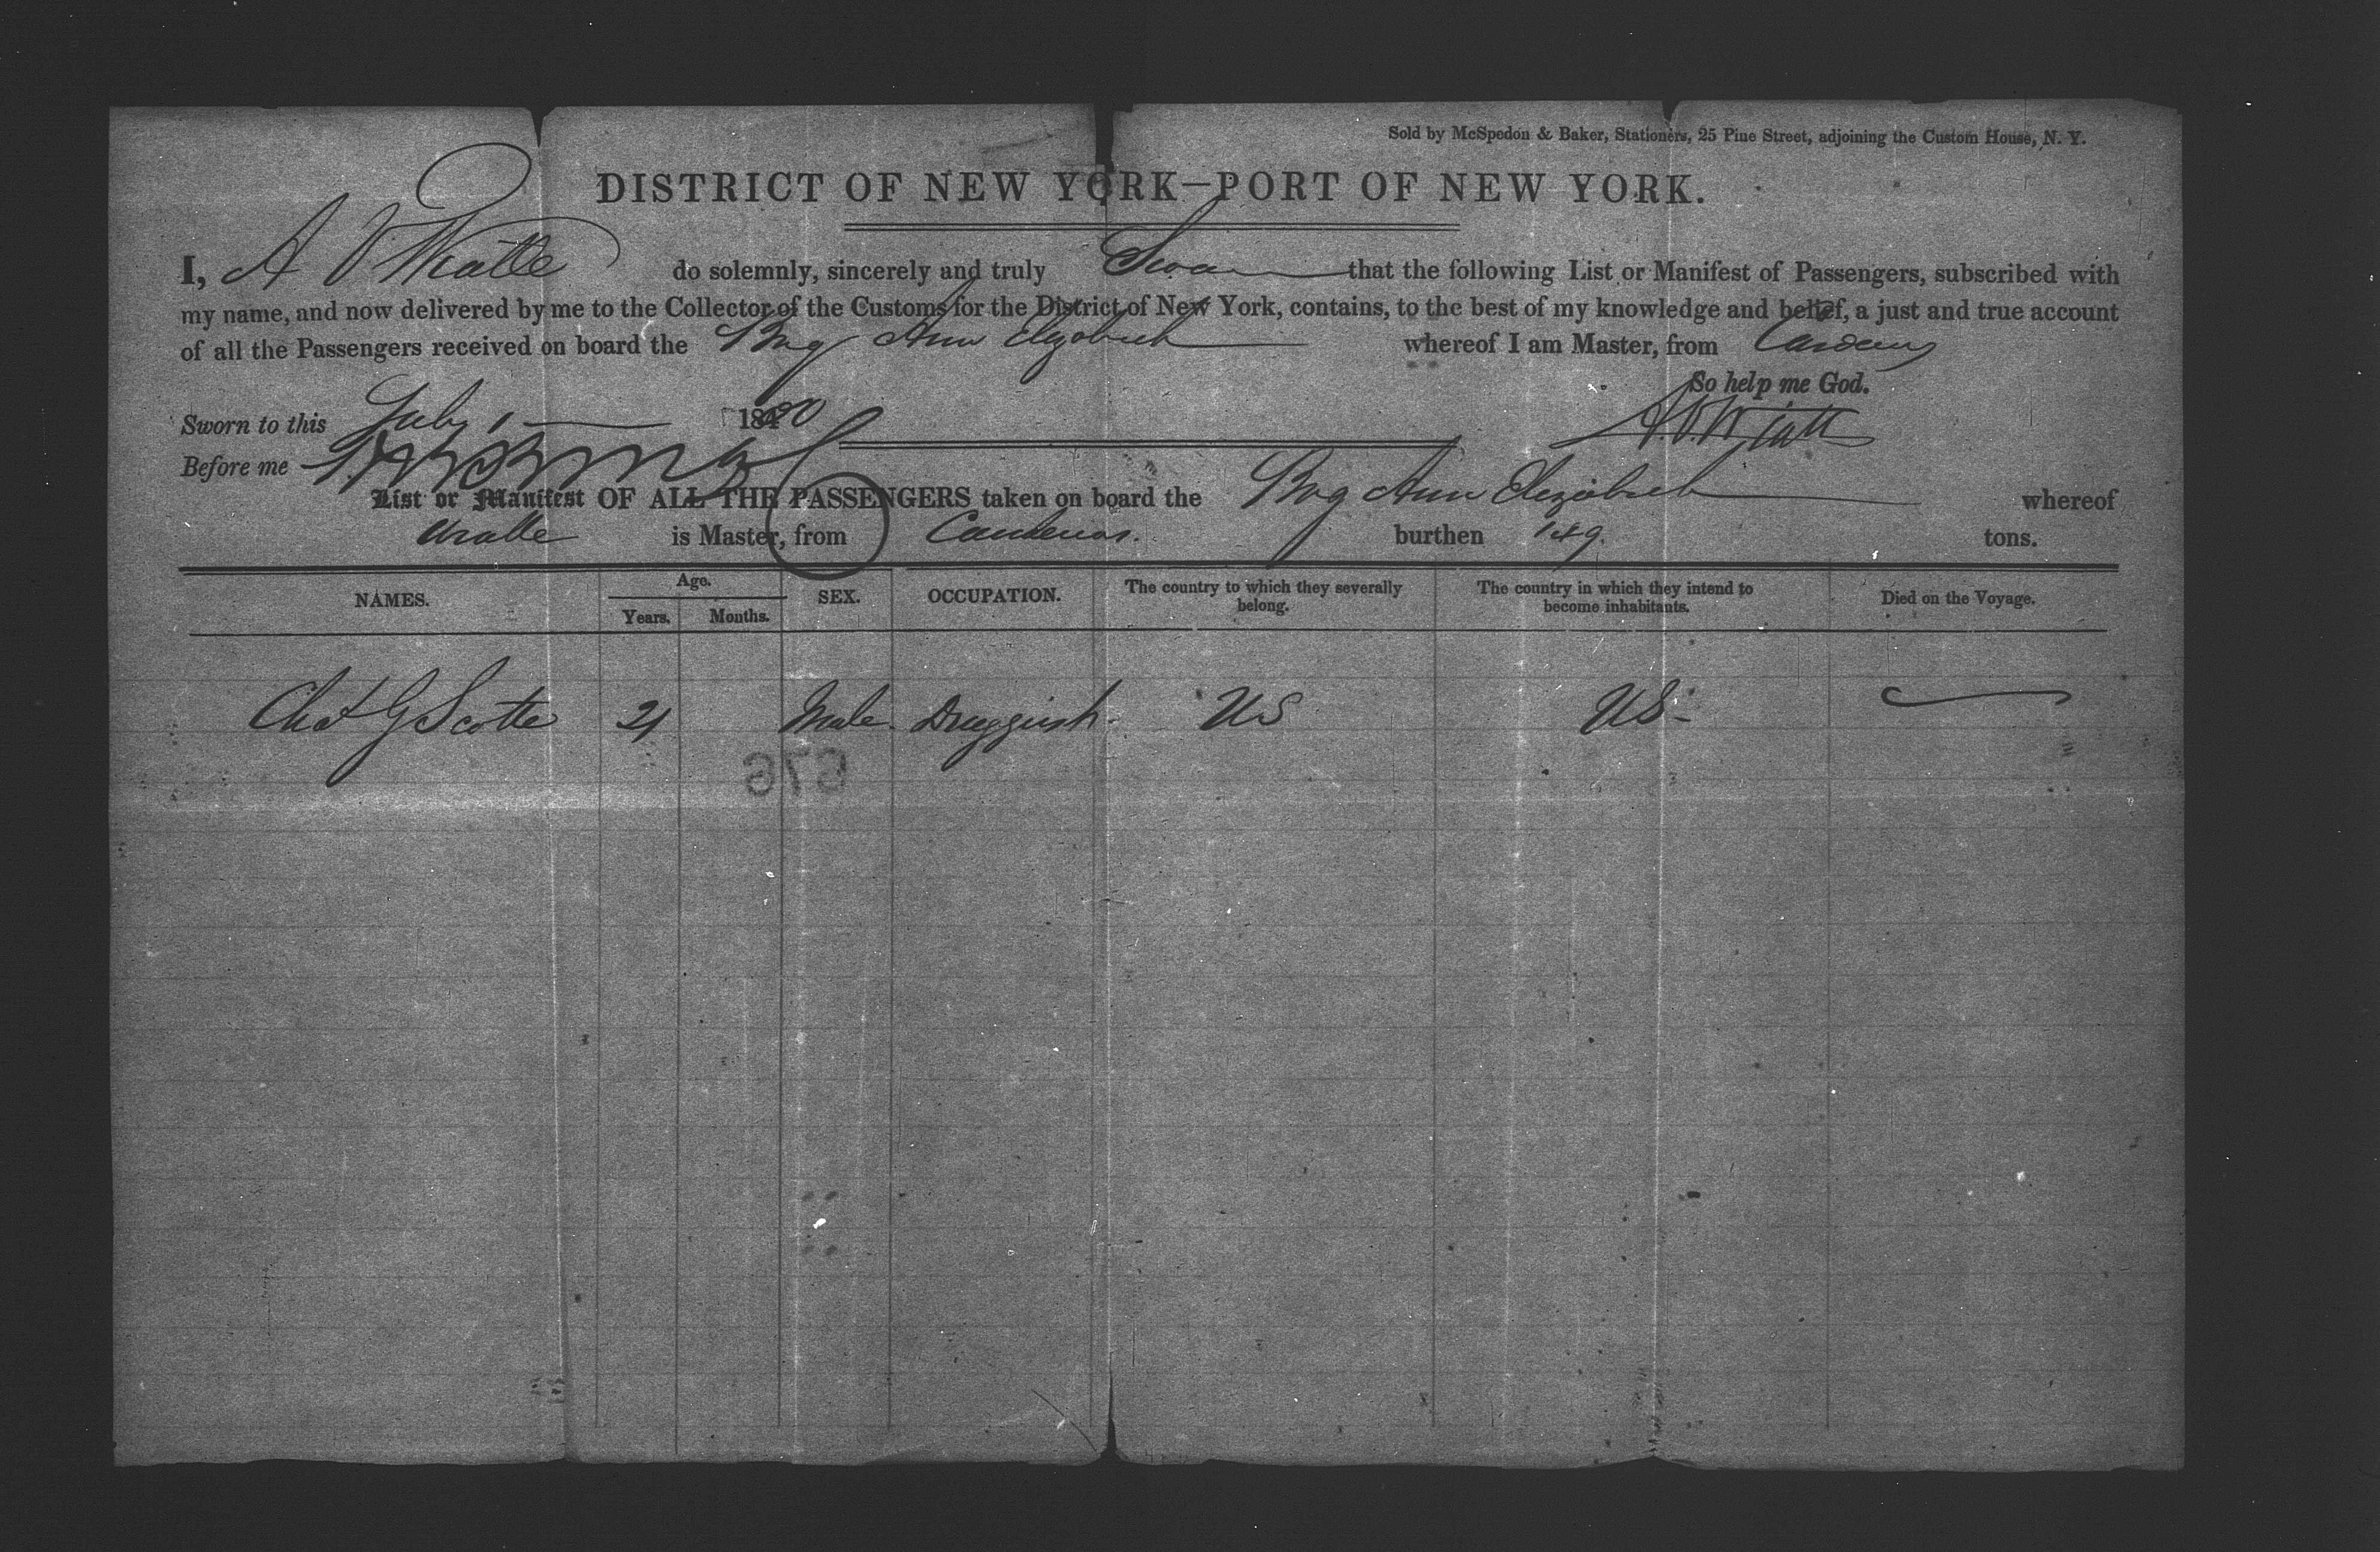 Sold by McSpedon & Baker, Stationers, 25 Pine Street, adjoining the Custom House, N. Y.
DISTRICT OF NEW YORK—PORT OF NEW YORK.
I, A V Wiatte do solemnly, sincerely and truly Swear that the following List or Manifest of Passengers, subscribed with
my name, and now delivered by me to the Collector of the Customs for the District of New York, contains, to the best of my knowledge and belief, a just and true account
of all the Passengers received on board the Brig Ann Elizabeth whereof I am Master, from Cardenas
So help me God.
Sworn to this July 1 1850
A.V. Wiatt
Before me
List or Manifest OF ALL THE PASSENGERS taken on board the Brig Ann Elizabeth whereof
Wiatte is Master, from Cardenas. burthen 149. tons.
NAMES. Age. SEX. OCCUPATION. The country to which they severally belong. The country in which they intend to become inhabitants. Died on the Voyage.
Years. Months.
Chas G Scotte 21 Male. Druggist. US US-
676